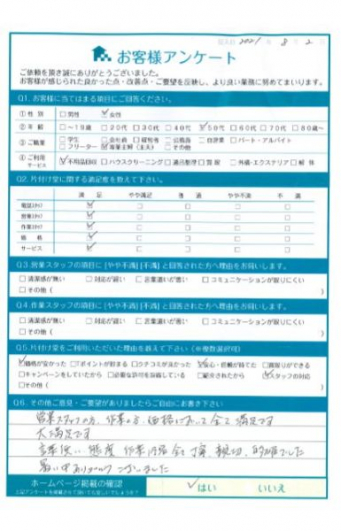 記入日 2021年 8月 2日
お客様アンケート
ご依頼を頂き誠にありがとうございました。
お客様が感じられた良かった点・改善点・ご要望を反映し、より良い業務に努めてまいります。
Q1. お客様に当てはまる項目にご回答ください。
①性 別 □男性 ☑女性
②年 齢 □～19歳 □20代 □30代 □40代 ☑50代 □60代 □70代 □80歳～
③ご職業 □学生 □会社員 □経営者 □公務員 □自営業 □パート・アルバイト
□フリーター ☑専業主婦(主夫) □その他
④ご利用サービス ☑不用品回収 □ハウスクリーニング □遺品整理 □買取 □外構・エクステリア □解体
Q2. 片付け堂に関する満足度を教えて下さい。
満 足 やや満足 普 通 やや不満 不 満
電話(受付) ☑ □ □ □ □
営業(受付) ☑ □ □ □ □
作業(受付) ☑ □ □ □ □
価 格 ☑ □ □ □ □
サービス ☑ □ □ □ □
Q3. 営業スタッフの項目に[やや不満][不満]と回答された方へ理由をお伺いします。
□清潔感が無い □対応が遅い □言葉遣いが悪い □コミュニケーションが取りにくい
□その他( )
Q4. 作業スタッフの項目に[やや不満][不満]と回答された方へ理由をお伺いします。
□清潔感が無い □対応が遅い □言葉遣いが悪い □コミュニケーションが取りにくい
□その他( )
Q5. 片付け堂をご利用いただいた理由を教えて下さい(※複数選択可)
☑価格が安かった □Tポイントが貯まる □クチコミが良かった ☑安心・信頼が持てた □買取りができる
□キャンペーンをしていたから □必要な許可を保有している □紹介されたから ☑スタッフの対応
□その他( )
Q6. その他ご意見・ご要望がありましたらご自由にお書き下さい
営業スタッフの方、作業の方、価格においても全て満足です
大満足です
言葉使い 態度 作業内容 全て丁寧 親切、的確でした
暑い中ありがとうございました
ホームページ掲載の確認
上記アンケートを掲載させて頂いても宜しいでしょうか?
✓はい いいえ